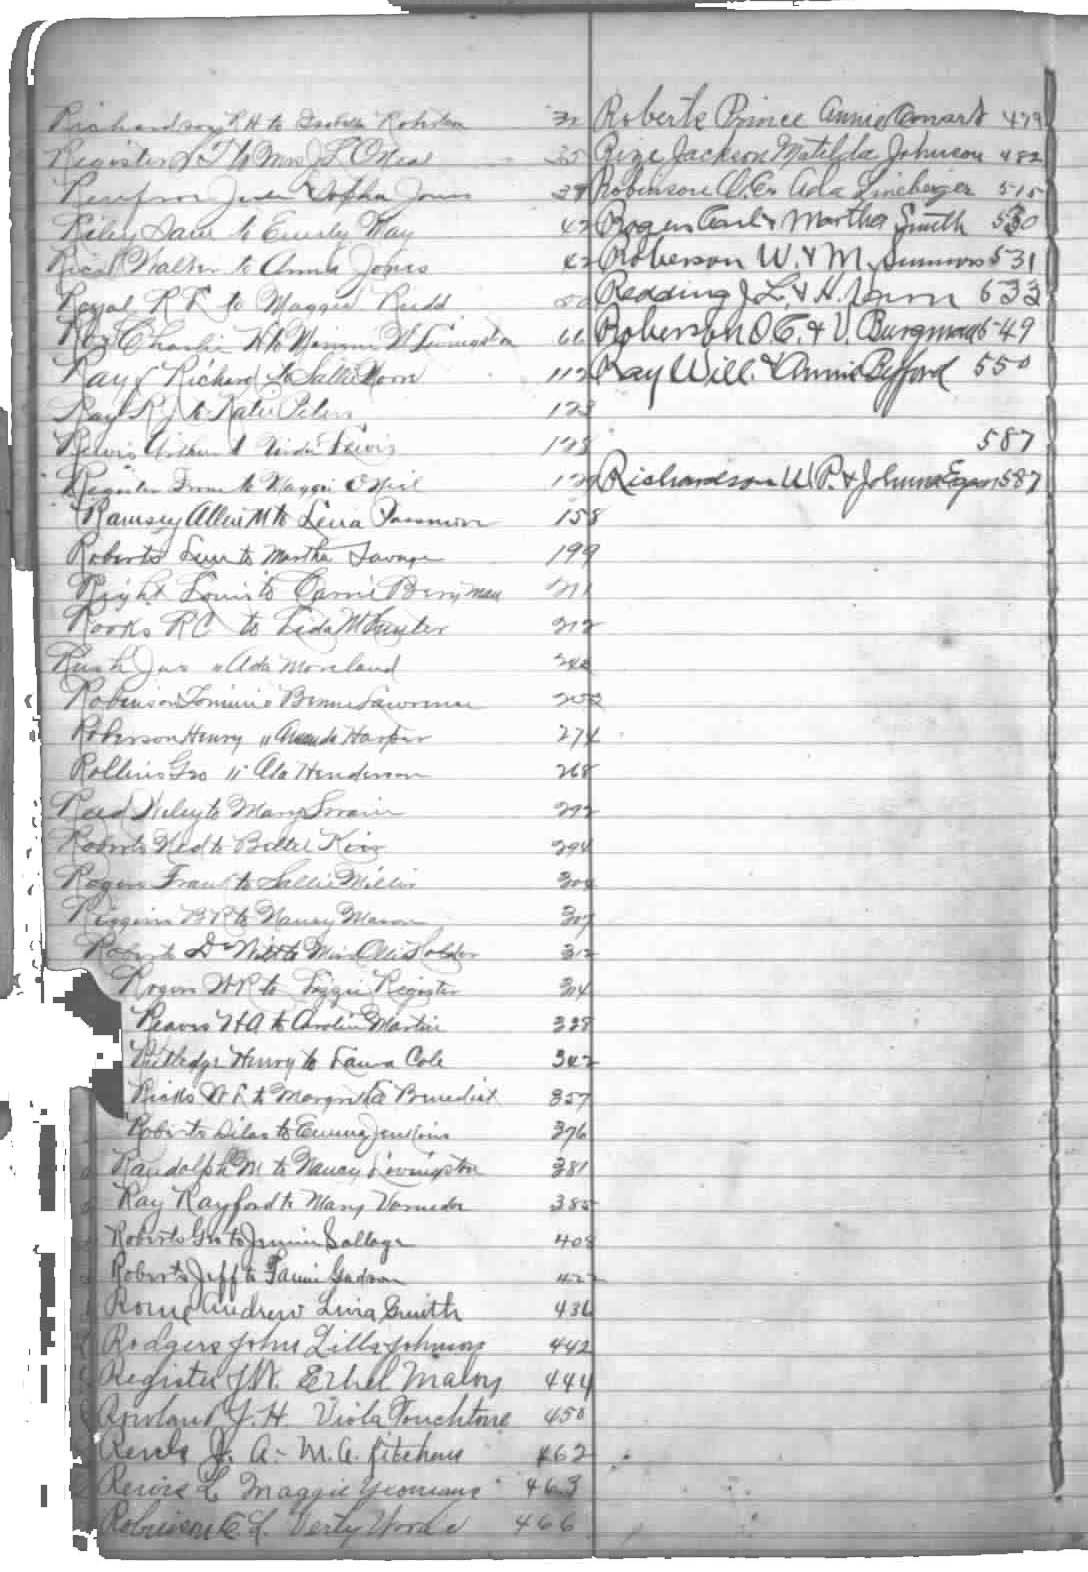 Richardson, R H to Isabella Robertson 32
Register J T to Mrs J L O'Neal 35
Renfroe Sopha Jones 39
Riley Sam to Emily Way 42
Rice Walter to Anna Jones 42
Royal R F to Maggie Rudd 50
Roy Charlie H to Minnie W Livingston 66
Ray Richard to Sallie Moore 112
Ray R J to Katie Peters 123
Rewis Arthur Lewis 128
Register to Maggie O Neil 132
Ramsey Allen M to Lena Passmore 158
Roberts to Martha Savage 199
Right Louis to Carrie Berryman 211
Rooks R C to Lida McGuyter 212
Rush Jas " Ada Moreland 240
Robinson Tommie " Bennie Lawrence 252
Roberson Henry " Amanda Harper 274
Rollins Geo " Ola Henderson 268
Reed Wiley to Mary Swain 292
Roberts Ned to Bettie King 294
Rogers Frank to Sallie Willis 304
Riggins B R to Nancy Mason 307
Roberts DeWitt to Miss Ollie Holder 312
Rogers W R to Lizzie Register 314
Reaves H A to Caroline Martin 328
Rutledge Henry to Laura Cole 342
Ricks W F to Benedict 357
Roberts Silas to Emma Jenkins 376
Randolph M to Nancy Livingston 381
Ray Rayford to Mary Varnedor 385
Roberts Geo to Jennie Sallage 408
Roberts Jeff to Fannie Gadson 422
Rome Andrew Livia Smith 436
Rodgers John Zilla Johnson 442
Register J W. Ethel Maloy 444
Rowland J. H. Viola Touchtone 450
J. A. - M. A. Kitchens 462
Rewis L Maggie Yeomans 463
Robinson E L. Verty 466
Roberts Prince Annie Conart 479
Rize Jackson Matilda Johnson 482
Robinson O. E. Ada Lineberger 515
Rogers Carl & Martha Smith 530
Roberson W. & M. Summers 531
Redding J. L. & H. 533
Roberson O E. & V. Burgman 549
Ray Will. & Annie Byford 550
587
Richardson W. P. & Johnnie Egan 587